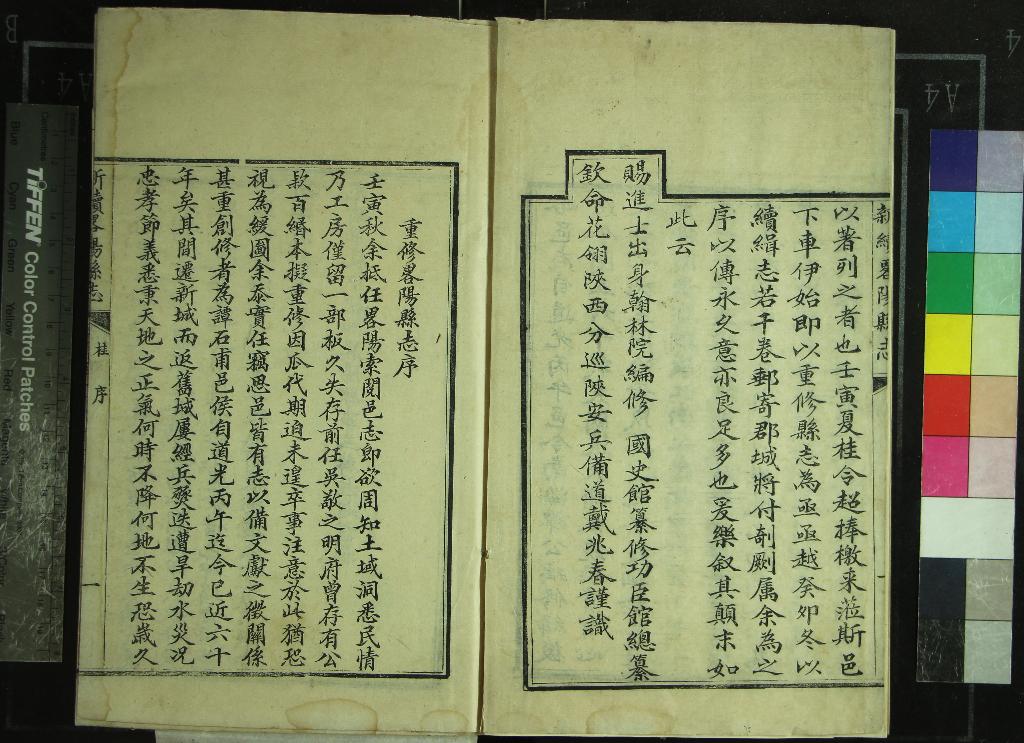 新續畧陽縣志
以著列之者也壬寅夏桂令超捧檄来蒞斯邑
下車伊始即以重修縣志為亟亟越癸夘冬以
續緝志若干卷郵寄郡城將付剞劂属余為之
序以傳永久意亦良足多也爰樂叙其顛末如
此云
賜進士出身翰林院編修 國史館纂修功臣館總纂
欽命花翎陝西分巡陝安兵備道戴兆春謹識
重修畧陽縣志序
壬寅秋余抵任畧陽索閱邑志即欲周知土域洞悉民情
乃工房僅留一部板久失存前任吳敬之明府曾存有公
款百緡本擬重修因瓜代期迫未遑卒事注意於此猶恐
視為緩圖余忝實任竊思邑皆有志以備文獻之徵關係
甚重創修者為譚石甫邑侯自道光丙午迄今已近六十
年矣其間遷新城而返舊城屢經兵燹迭遭旱劫水災况
忠孝節義悉秉天地之正氣何時不降何地不生恐歲久
新續畧陽縣志
桂序
一
TIFFEN Color Control Patches
Blue
Cyan
Green
Yellow
Red
Magenta
A4
A4
B